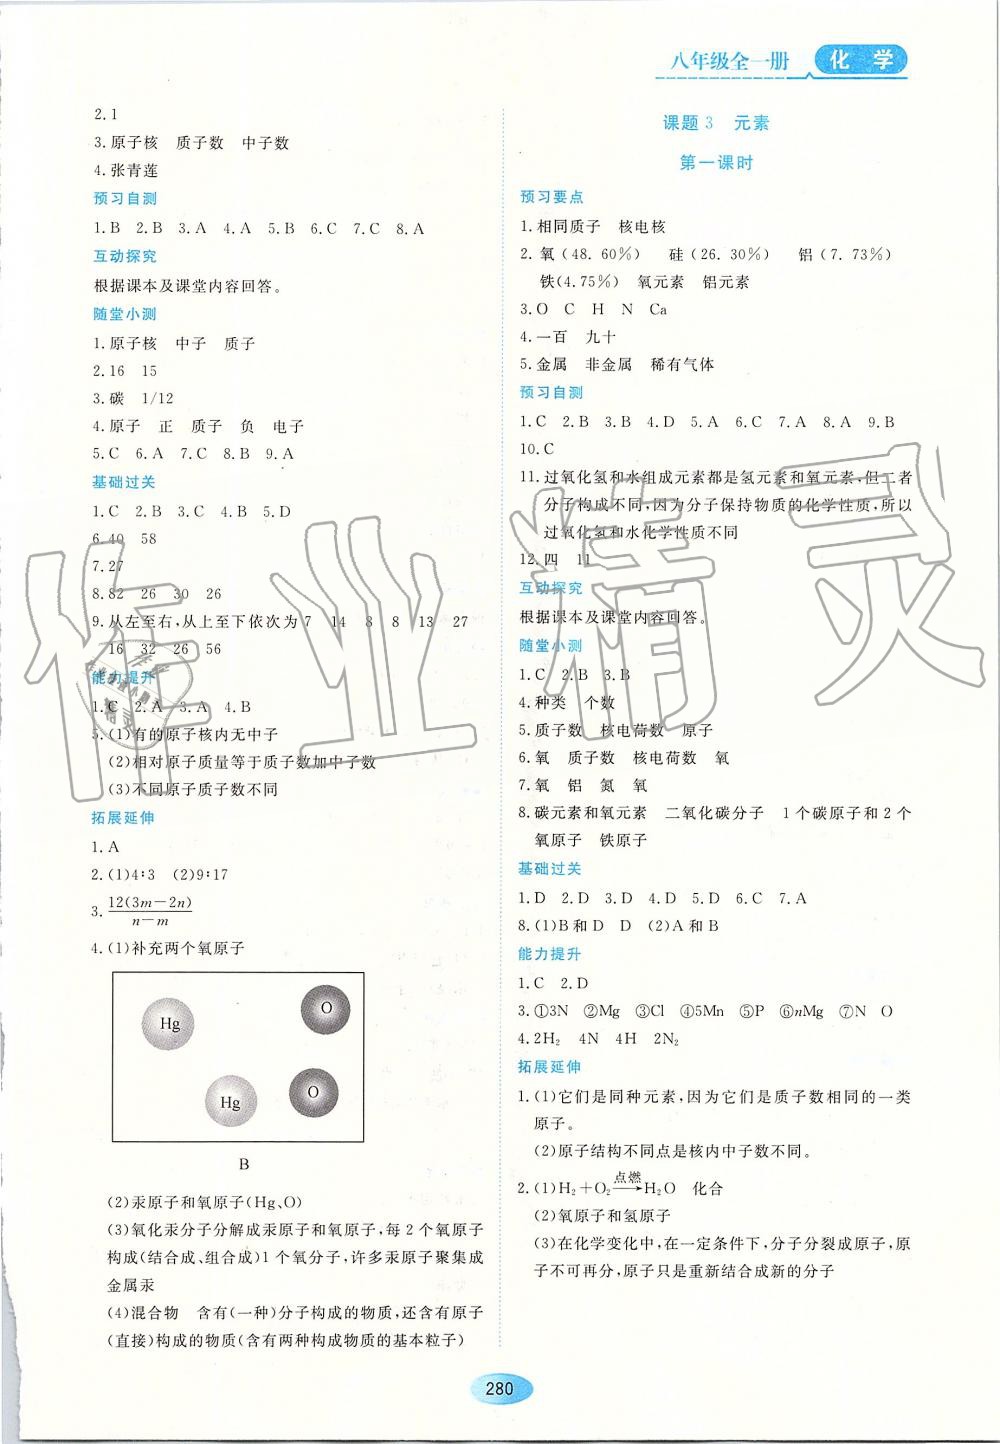 八年级全一册 化学
2.1
3.原子核 质子数 中子数
4.张青莲
预习自测
1.B 2.B 3.A 4.A 5.B 6.C 7.C 8.A
互动探究
根据课本及课堂内容回答。
随堂小测
1.原子核 中子 质子
2.16 15
3.碳 1/12
4.原子 正 质子 负 电子
5.C 6.A 7.C 8.B 9.A
基础过关
1.C 2.B 3.C 4.B 5.D
6.40 58
7.27
8.82 26 30 26
9.从左至右,从上至下依次为 7 14 8 8 13 27
16 32 26 56
能力提升
1.C 2.A 3.A 4.B
5.(1)有的原子核内无中子
(2)相对原子质量等于质子数加中子数
(3)不同原子质子数不同
拓展延伸
1.A
2.(1)4∶3 (2)9∶17
3. 12(3m−2n)
n−m
4.(1)补充两个氧原子
Hg O
Hg O
B
(2)汞原子和氧原子(Hg、O)
(3)氧化汞分子分解成汞原子和氧原子,每 2 个氧原子
构成(结合成、组合成)1 个氧分子,许多汞原子聚集成
金属汞
(4)混合物 含有(一种)分子构成的物质,还含有原子
(直接)构成的物质(含有两种构成物质的基本粒子)
课题 3 元素
第一课时
预习要点
1.相同质子 核电核
2.氧(48.60%) 硅(26.30%) 铝(7.73%)
铁(4.75%) 氧元素 铝元素
3.O C H N Ca
4.一百 九十
5.金属 非金属 稀有气体
预习自测
1.C 2.B 3.B 4.D 5.A 6.C 7.A 8.A 9.B
10.C
11.过氧化氢和水组成元素都是氢元素和氧元素,但二者
分子构成不同,因为分子保持物质的化学性质,所以
过氧化氢和水化学性质不同
12.四 11
互动探究
根据课本及课堂内容回答。
随堂小测
1.C 2.B 3.B
4.种类 个数
5.质子数 核电荷数 原子
6.氧 质子数 核电荷数 氧
7.氧 铝 氮 氧
8.碳元素和氧元素 二氧化碳分子 1 个碳原子和 2 个
氧原子 铁原子
基础过关
1.D 2.D 3.D 4.D 5.D 6.C 7.A
8.(1)B和D D (2)A和B
能力提升
1.C 2.D
3.①3N ②Mg ③Cl ④5Mn ⑤P ⑥nMg ⑦N O
4.2H₂ 4N 4H 2N₂
拓展延伸
1.(1)它们是同种元素,因为它们是质子数相同的一类
原子。
(2)原子结构不同点是核内中子数不同。
2.(1)H₂+O₂ 点燃→ H₂O 化合
(2)氧原子和氢原子
(3)在化学变化中,在一定条件下,分子分裂成原子,原
子不可再分,原子只是重新结合成新的分子
280
作业精灵